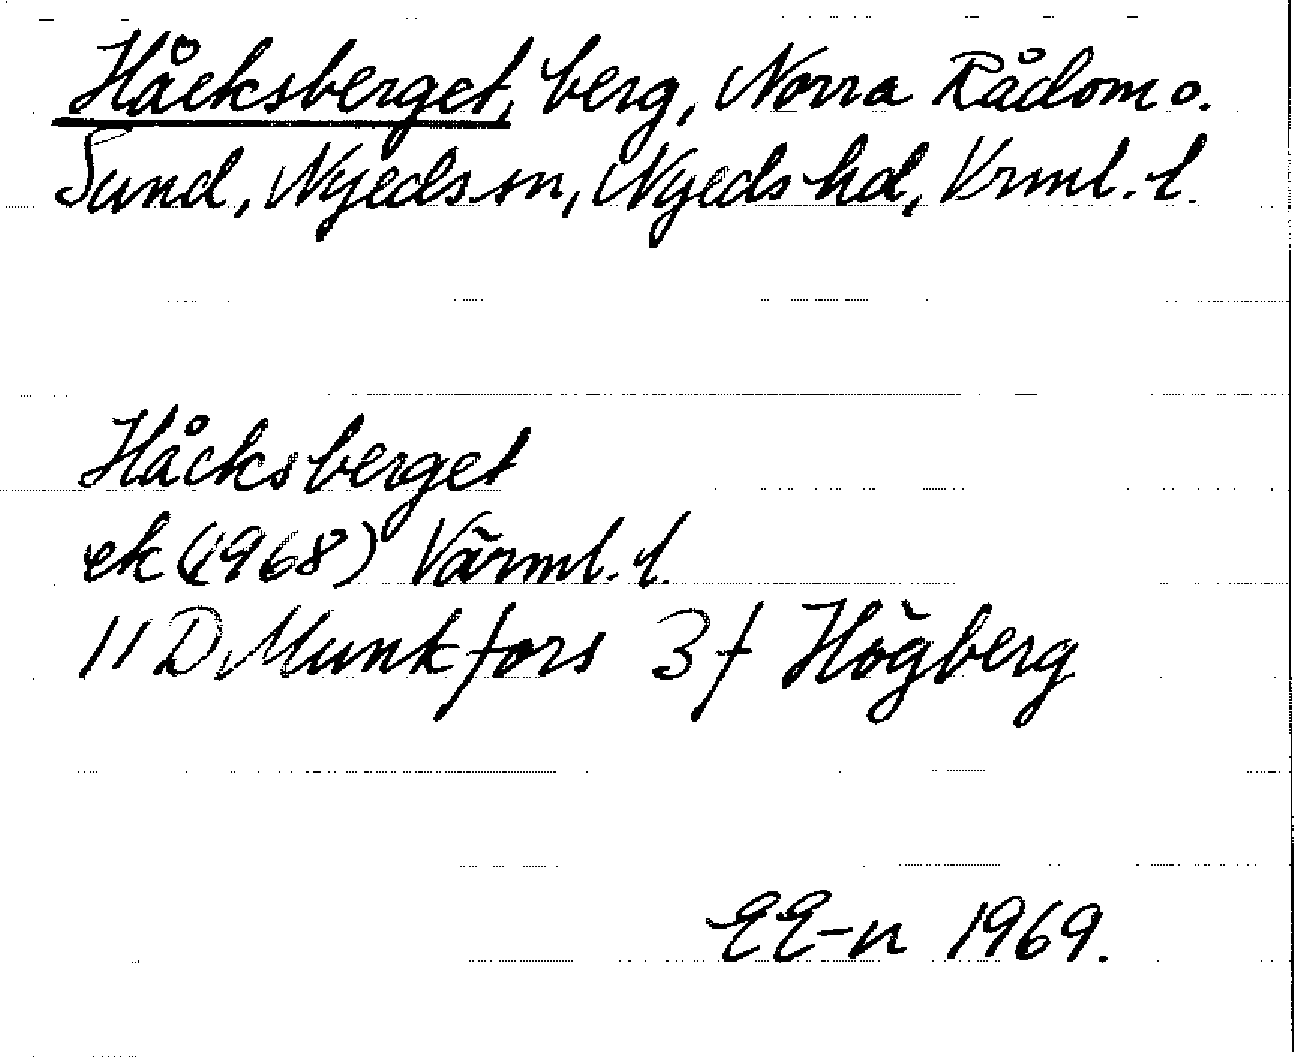 Håcksberget, berg, Norra Rådom o.
Sund, Nyeds sn, Nyeds hd, Vrml. l.
Håcksberget
ek (1968) Värml. l.
11 D Munkfors 3f Högberg
EE-n 1969.